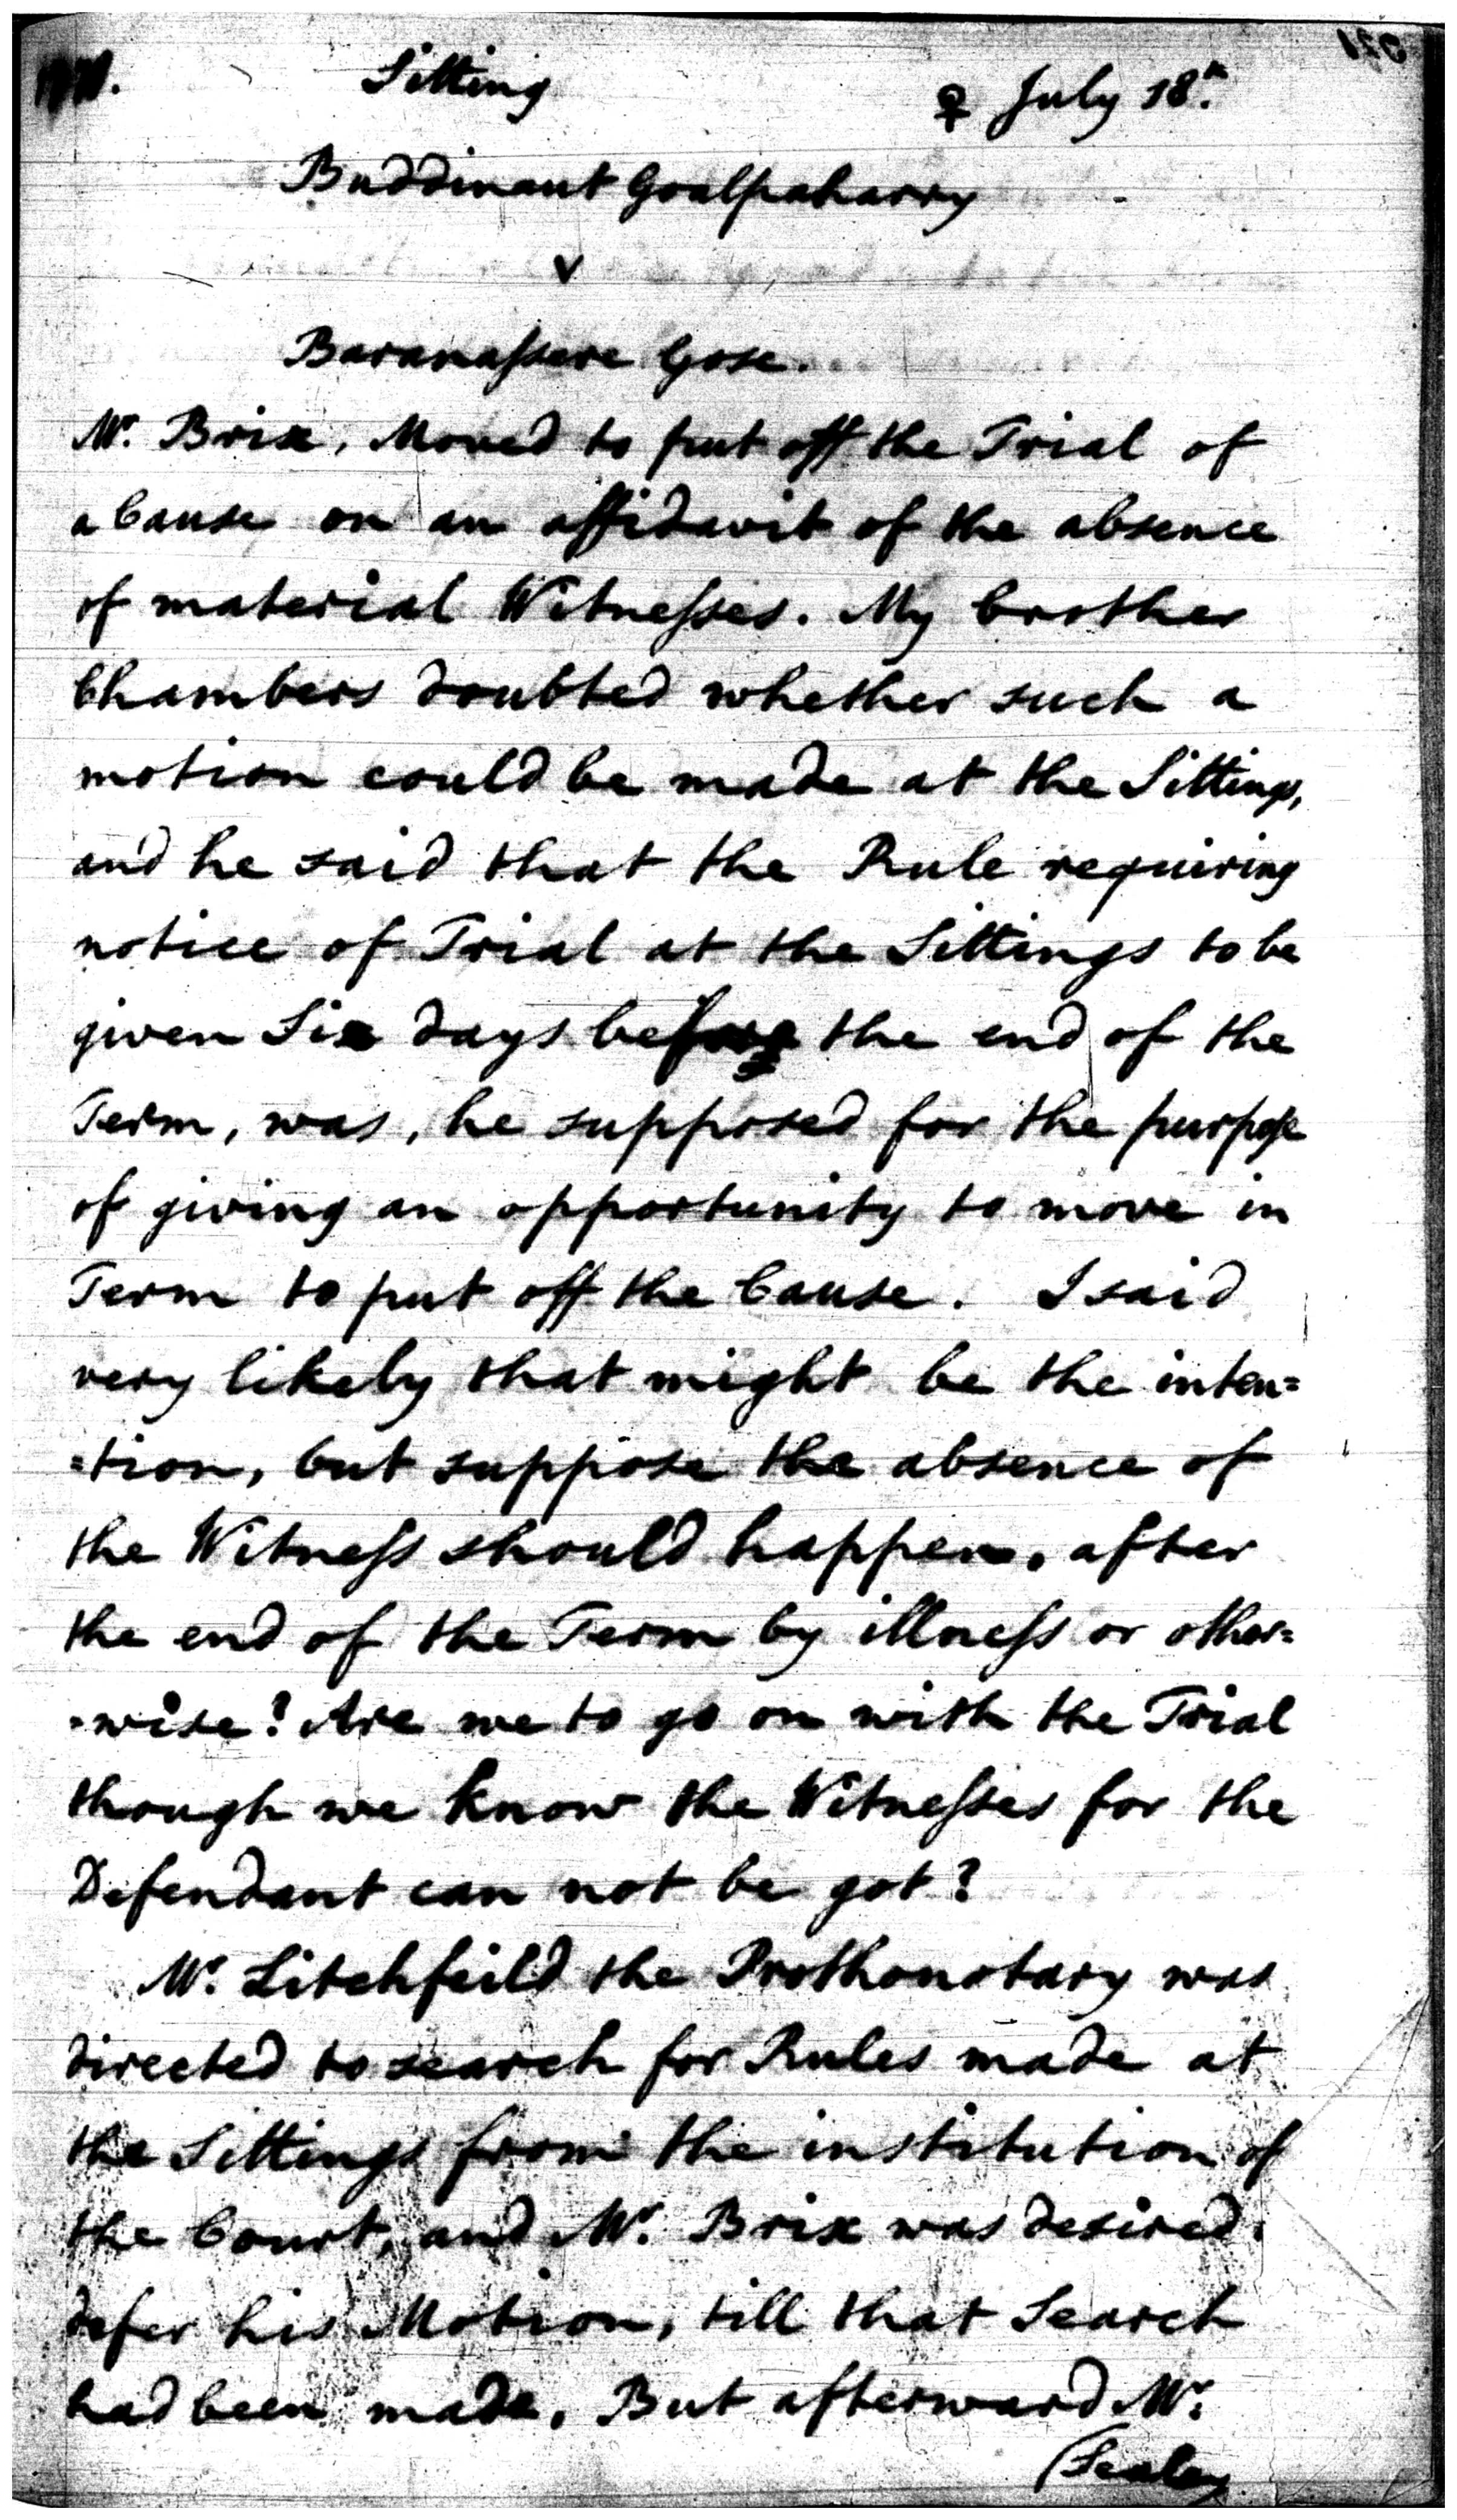 Sitting
♀ July 18th.
Buddinaut Goalpaharry
v
Baranaſsere Gose.
Mr. Brix, Moved to put off the Trial of
a Cause on an affidavit of the absence
of material Witneſses. My brother
Chambers doubted whether such a
motion could be made at the Sittings,
and he said that the Rule requiring
notice of Trial at the Sittings to be
given Six days before the end of the
Term, was, he supposed for the purpose
of giving an opportunity to move in
Term to put off the Cause. I said
very likely that might be the inten=
=tion, but suppose the absence of
the Witneſs should happen, after
the end of the Term by illneſs or other=
=wise? Are we to go on with the Trial
though we know the Witneſses for the
Defendant can not be got?
Mr. Litchfeild the Prothonotary was
directed to search for Rules made at
the Sittings from the institution of
the Court, and Mr. Brix was desired
defer his Motion, till that Search
had been made. But afterward Mr.
(Sealey